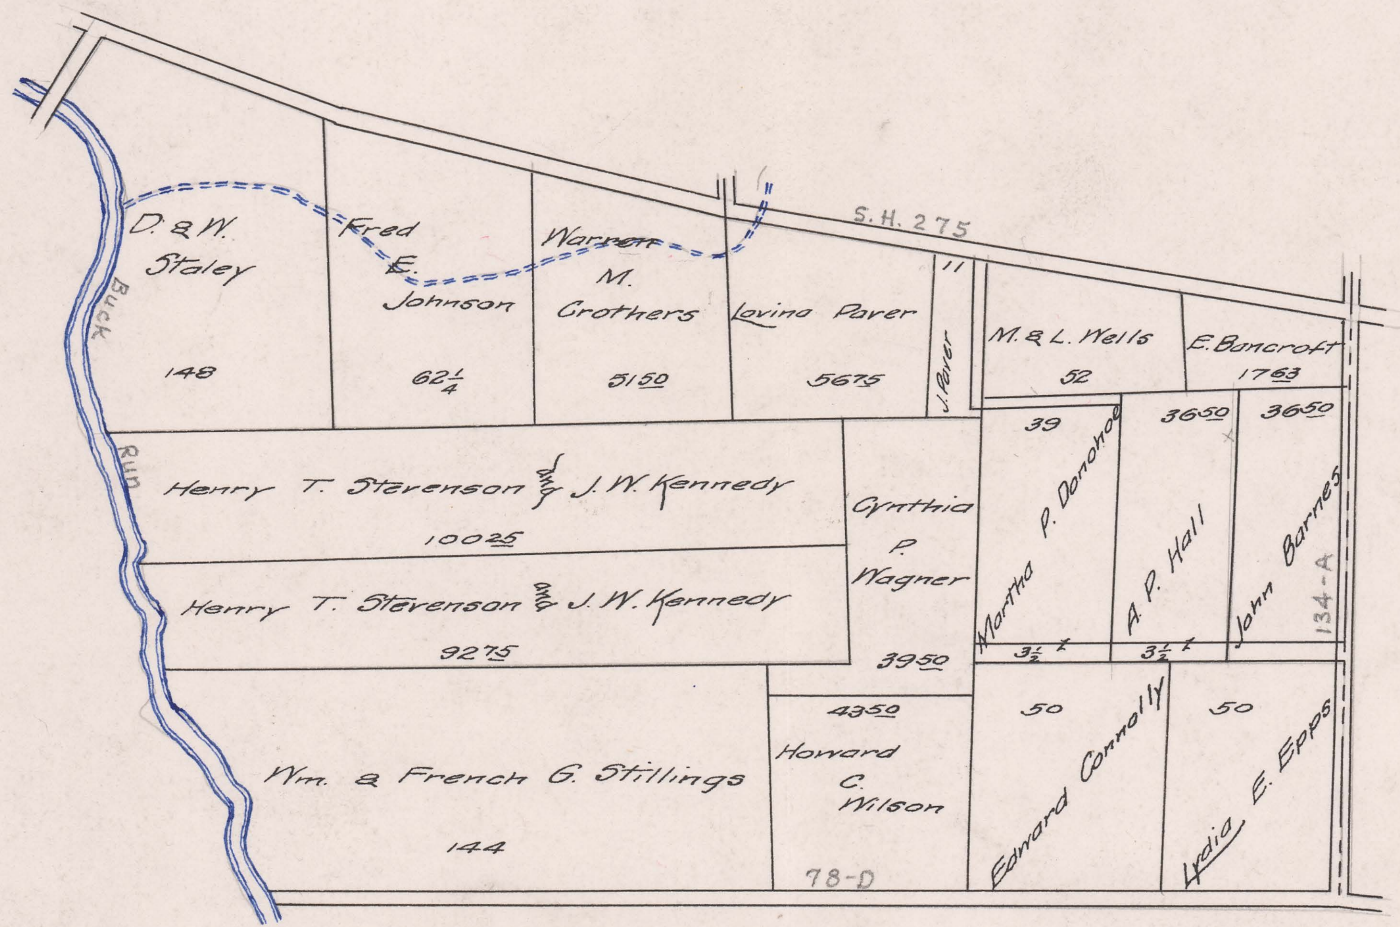 S. H. 275
D. & W.
Staley
148
Fred
E.
Johnson
62 1/4
Warren
M.
Crothers
51 50
Lovina Parer
56 75
11
J. Parer
M. & L. Wells
52
E. Bancroft
17 63
Buck
Run
Henry T. Stevenson and J. W. Kennedy
100 25
Henry T. Stevenson and J. W. Kennedy
92 75
Cynthia
P.
Wagner
39 50
39
Martha P. Donohoe
3 1/2
36 50
x
A. P. Hall
3 1/2
36 50
John Barnes
134-A
Wm. & French G. Stillings
144
43 50
Howard
C.
Wilson
78-D
50
Edward Connolly
50
Lydia E. Epps